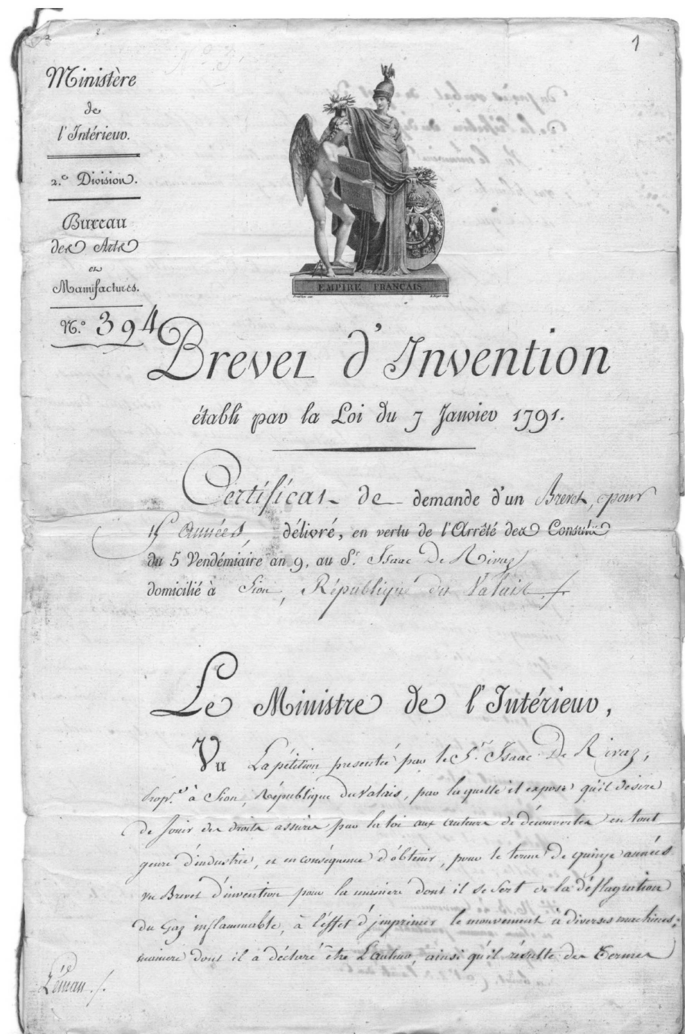 1
Ministère
de
l'Intérieur.
2.e Division.
Bureau
des Arts
et
Manufactures.
N.o 394
EMPIRE FRANÇAIS.
Brevet d'Invention
établi par la Loi du 7 Janvier 1791.
Certificat de demande d'un Brevet, pour
15 années, délivré, en vertu de l'Arrêté des Consuls
du 5 Vendémiaire an 9, au S.r Isaac De Rivaz
domicilié à Sion, République du Valais
Le Ministre de l'Intérieur,
Vu La pétition présentée par le S.r Isaac De Rivaz,
prop.re à Sion, République du Valais, par laquelle il expose qu'il désire
de Jouir des droits assurés par la loi aux auteurs de découvertes en tout
genre d'industrie, et en conséquence d'obtenir, pour le terme de quinze années
un Brevet d'invention pour la manière dont il se sert de la déflagration
du Gaz inflammable, à l'effet d'imprimer le mouvement à diverses machines,
manière dont il a déclaré être L'auteur, ainsi qu'il résulte du